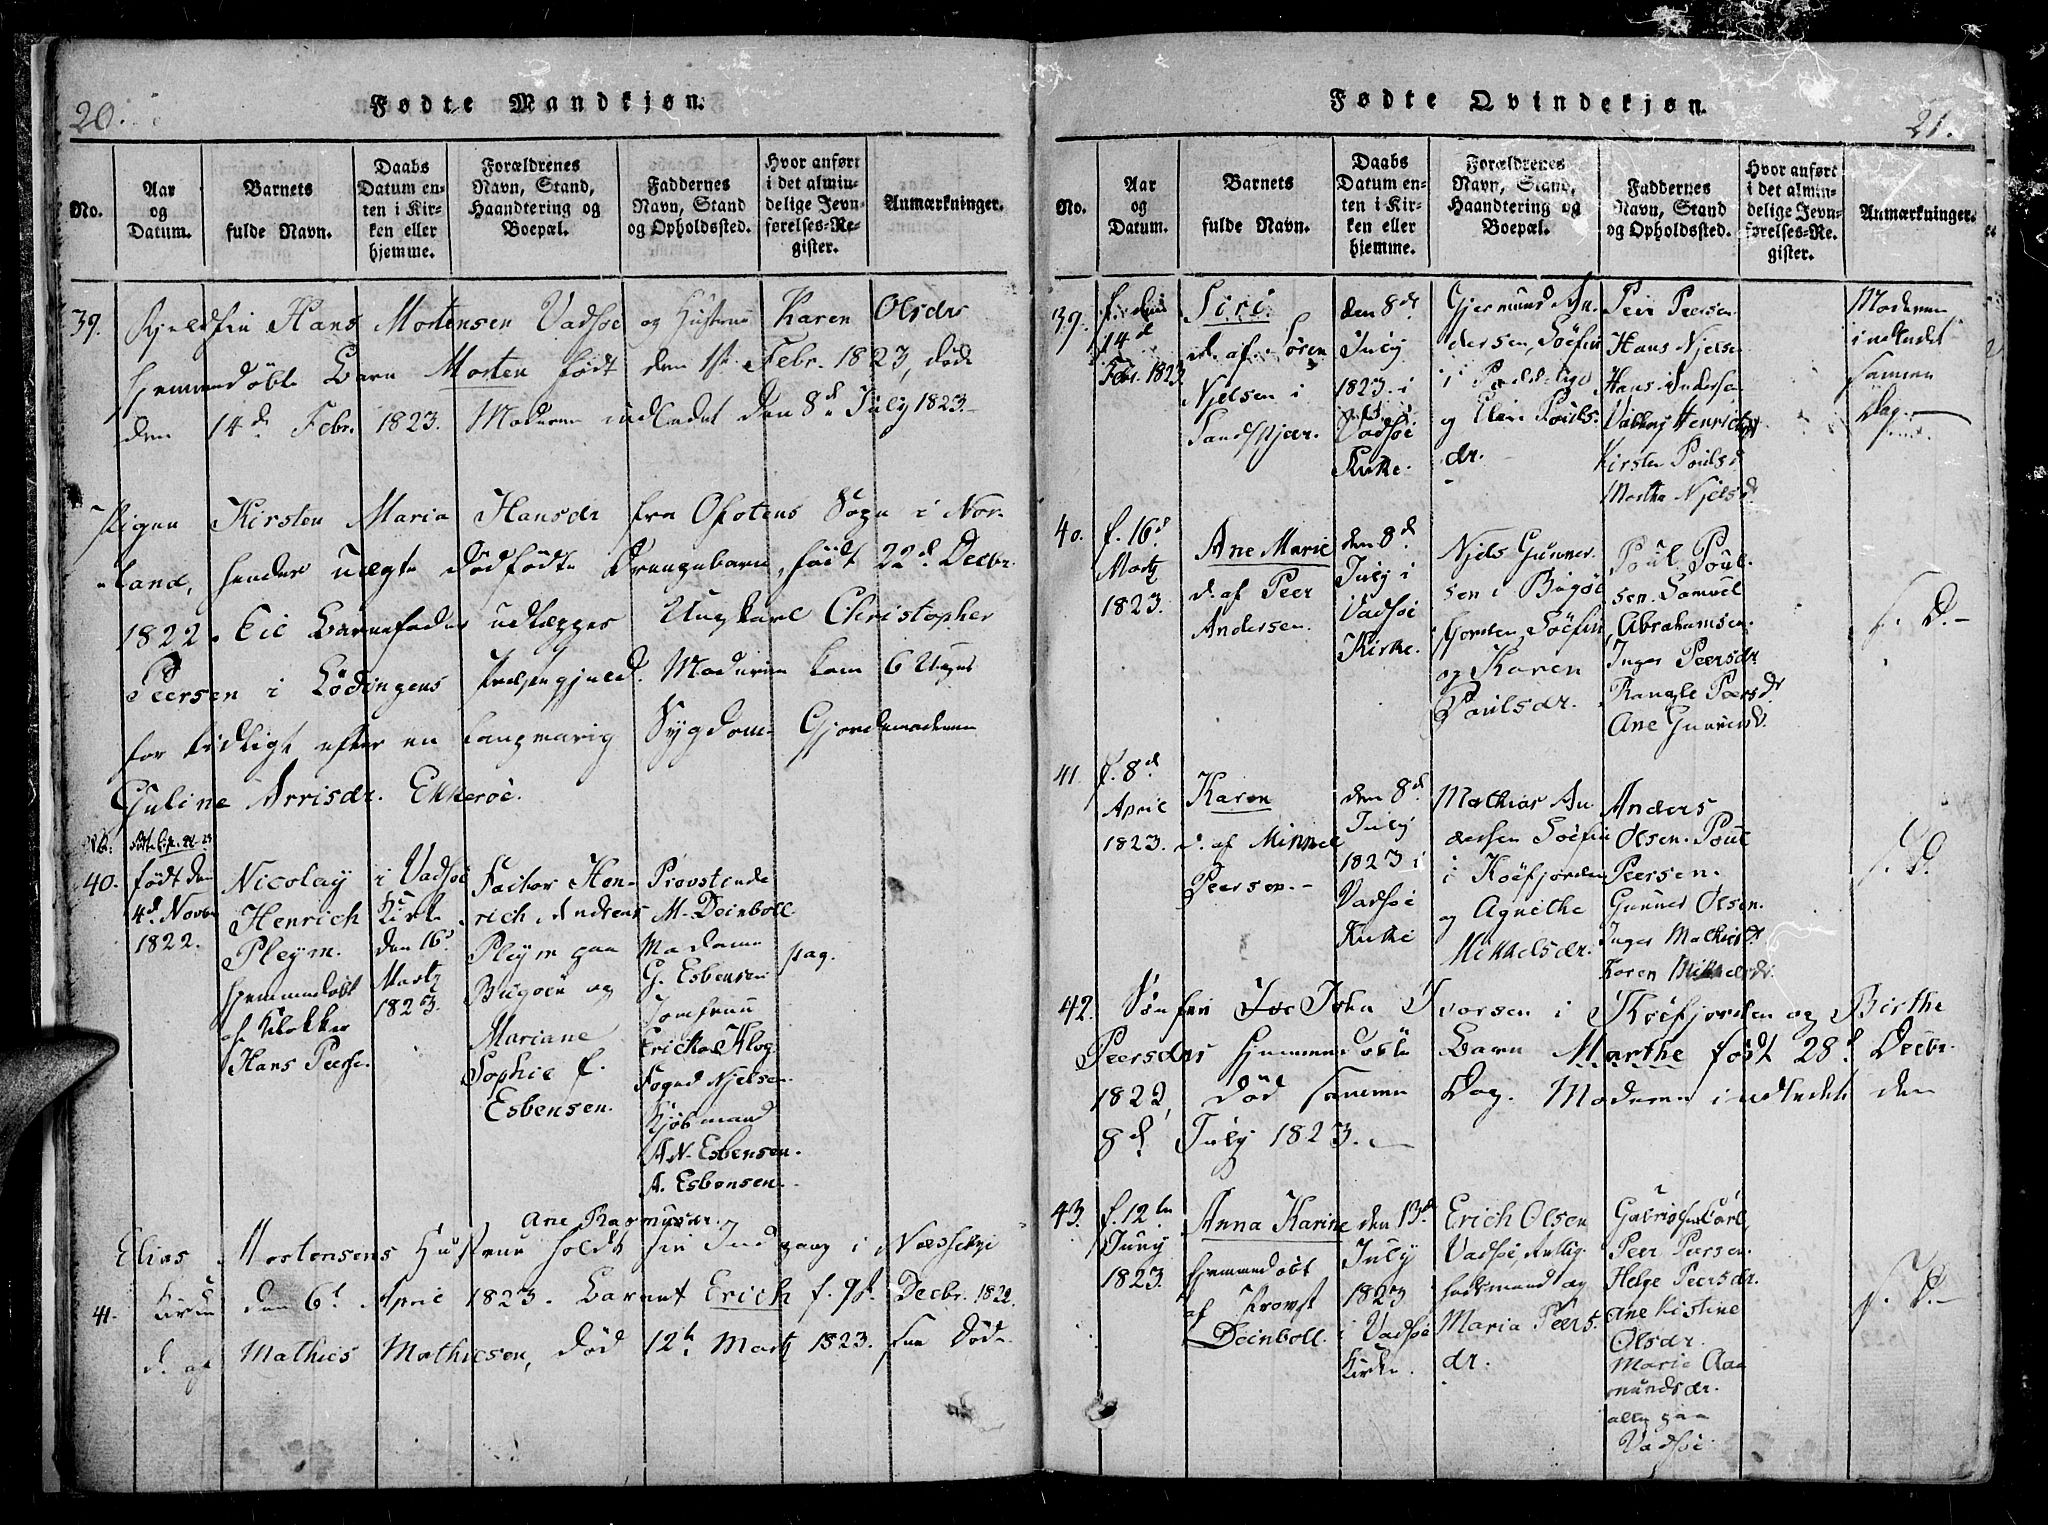 20.
Fødte Mandkjøn.
No.
Aar
og
Datum.
Barnets
fulde Navn.
Daabs
Datum en-
ten i Kir-
ken eller
hjemme.
Forældrenes
Navn, Stand,
Haandtering og
Boepæl.
Faddernes
Navn, Stand
og Opholdssted.
Hvor anført
i det almin-
delige Jevn-
førelses-Re-
gister.
Anmærkninger.
39. Hans Mortensen Vadsøe og Hustrue Karen Olsdrs
hjemmedøbte Barn Morten født den 1st Febr. 1823, døde
den 14d Febr. 1823. Moderen indledet den 8d July 1823.
Pigen Kirsten Maria Hansdr fra Ofotens Sogn i Nor-
land, hendes uægte dødfødte Drengebarn, født 22d Decbr.
1822. til Barnefader udlægges Ungkarl Christopher
Peersen i Lødingens Præstegjæld. Moderen kom 6 Uger
for tidligt efter en langvarig Sygdom. Gjordemoderen
Guline Arrisdr. Ekkerøe.
40. født den
4d Novbr
1822.
Nicolay
Henrich
Pleym.
hjemmedøbt
af Klokker
Hans Peersen.
i Vadsøe
Kirke
den 16d
Martz
1823.
Factor Hen-
rich Andreas
Pleym paa
Bugøen og
Mariane
Sophie f.
Esbensen.
Provstinde
M. Deinboll
Madame
G. Esbensen
Jomfruen
Ericka Klog
Foged Njelsen
Kjøbmand
A. N. Esbensen.
A. Esbensen.
pag.
Ane Rasmusdr.
Elias Mortensens Hustrue holdt sin Indgang i Næsseby
41. Kirke den 6d April 1823. Barnet Erich f. 9d Decbr. 1822.
d. af Mathies Mathiesen, død 12te Martz 1823. før Døde
21.
Fødte Qvindekjøn.
No.
Aar
og
Datum.
Barnets
fulde Navn.
Daabs
Datum en-
ten i Kir-
ken eller
hjemme.
Forældrenes
Navn, Stand,
Haandtering og
Boepæl.
Faddernes
Navn, Stand
og Opholdssted.
Hvor anført
i det almin-
delige Jevn-
førelses-Re-
gister.
Anmærkninger.
39. f. den
14d
Febr. 1823
Siri
d. af Søren
Njelsen i
Sandskjær.
den 8de
July
1823 i
Vadsøe
Kirke.
Gjermund An-
dersen, Søefin
i
og Elen Pouls-
dr.
Peer Peersen
Hans Njelsen
Hans Andersen
Valborg Henrichsdr
Kirsten Poulsd
Martha Njelsd.
Moderen
indledet
samme
Dag.
40. f. 16d
Martz
1823.
Ane Marie
d. af Peer
Andersen.
den 8d
July i
Vadsøe
Kirke.
Njels Gunner-
sen i Bugøe
fjorden Søefin
og Karen
Poulsdr.
Poul Poul-
sen Samuel
Abrahamsen.
Inger Peersdr
Rangle Peersdr
Ane Gunnersd.
s. D.
41. f. 8d
April
1823.
Karen
d. af Minnel
Peersen.
den 8d
July
1823 i
Vadsøe
Kirke
Mathias An-
dersen Søefin
i Køefjorden
og Agnethe
Mikkelsdr.
Anders
Olsen. Poul
Peersen.
Gunner Olsen.
Inger Mathiesd.
Karen Mikkelsdr.
s. D.
42. Søefin John Iversen i Køefjorden og Birthe
Peersdrs hjemmedøbte Barn Marthe født 28d Decbr.
1822, død samme Dag. Moderen indledet den
8d July 1823.
43. f. 12te
Juny
1823.
Anna Karine
hjemmedøbt
af Provst
Deinboll.
den 13d
July
1823
i Vadsøe
Kirke.
Erich Olsen
Vadsøe,
og
Maria Peers-
dr.
Carl
Peer Peersen.
Helge Peersdr.
Ane Kistine
Olsdr.
Marie Aa-
mundsdr.
alle paa
Vadsøe.
s. D.